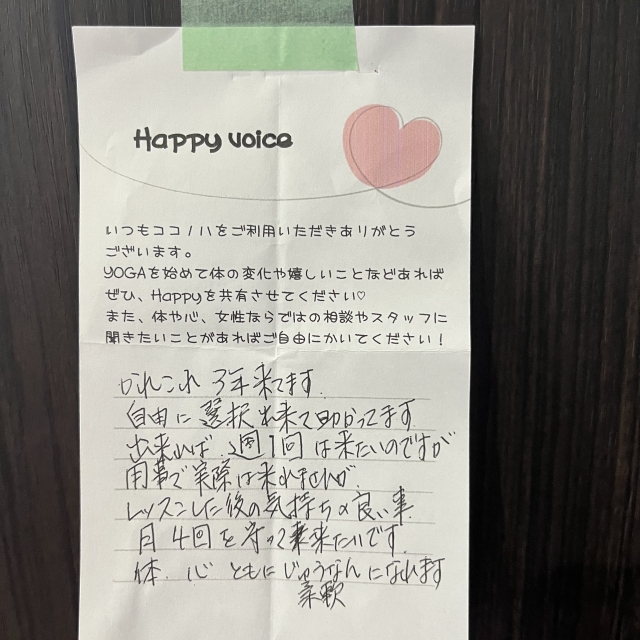 Happy voice
いつもココノハをご利用いただきありがとう
ございます。
YOGAを始めて体の変化や嬉しいことなどあれば
ぜひ、Happyを共有させてください♡
また、体や心、女性ならではの相談やスタッフに
聞きたいことがあればご自由にかいてください！
かれこれ 3年来てます.
自由に選択出来て助かってます
出来れば.週1回は来たいのですが
用事で実際は来れませんが.
レッスンした後の気持ちの良い事.
月4回を守って来たいです.
体.心ともにじゅうなんになれます
柔軟